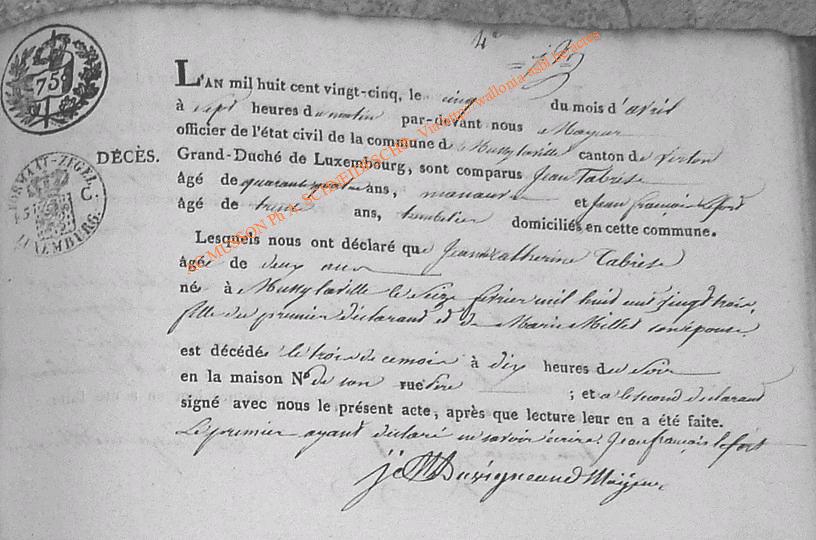 4e
75c
FORMAAT-ZEGEL
C.
LUXEMBURG.
DÉCÈS.
L'AN mil huit cent vingt-cinq, le cinq du mois d'avril
à sept heures du matin par-devant nous Mayeur
officier de l'état civil de la commune de Mussylaville canton de virton
Grand-Duché de Luxembourg, sont comparus Jean Tabrese
âgé de quarante quatre ans, manoeuvre et Jean françois Lefort
âgé de trente ans, domiciliés en cette commune.
Lesquels nous ont déclaré que Jeanne Catherine Tabrese
âgée de deux ans
née à Mussylaville le seize fevrier mil huit cent vingt trois,
fille du premier déclarant et de Marie Millet son épouse
est décédée le trois de ce mois à dix heures du soir
en la maison No de son rue père ; et a le second déclarant
signé avec nous le présent acte, après que lecture leur en a été faite.
Le premier ayant déclaré ne savoir écrire. Jean françois lefort
Duvigneaud Mayeur